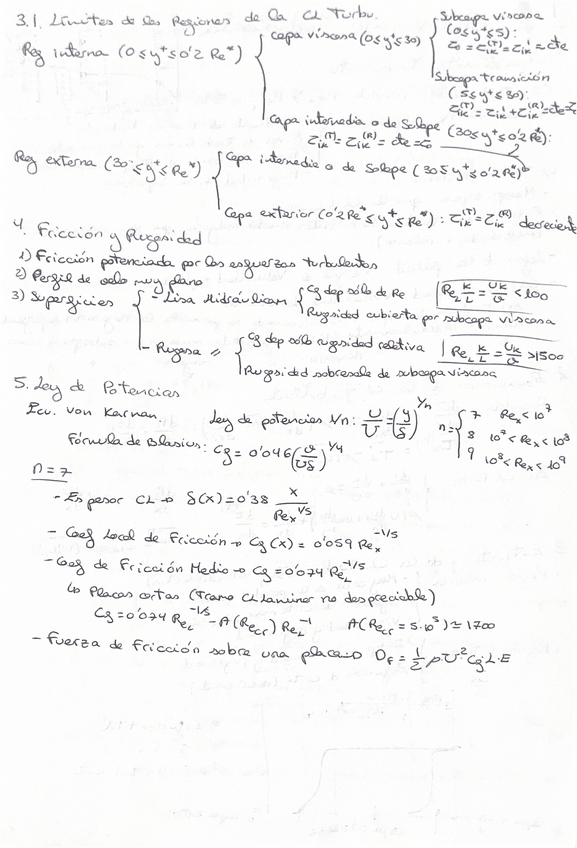 3.1. Límites de las Regiones de la CL Turbu.
Reg interna (0≤y⁺≤0'2 Re*)
Capa viscosa (0≤y⁺≤30)
Subcapa viscosa
(0≤y⁺≤5):
τ₀ = τᵢₖ^(T) = τᵢₖ^l = cte
Subcapa transición
(5≤y⁺≤30):
τᵢₖ^(T) = τᵢₖ^l + τᵢₖ^(R) = cte = τ₀
Capa intermedia o de Solape (30≤y⁺≤0'2Re*):
τᵢₖ^(T) = τᵢₖ^(R) = cte = τ₀
Reg externa (30≤y⁺≤Re*)
Capa intermedia o de Solape (30≤y⁺≤0'2Re*)
Capa exterior (0'2Re*≤y⁺≤Re*): τᵢₖ^(T) = τᵢₖ^(R) decreciente
4. Fricción y Rugosidad
1) Fricción potenciada por los esfuerzos turbulentos
2) Perfil de velo muy plano
3) Superficies
- Lisa Hidráulicam
Cf dep sólo de Re
Re_L k/L = Uk/υ < 100
Rugosidad cubierta por subcapa viscosa
- Rugosa "
Cf dep sólo rugosidad relativa
Re_L k/L = Uk/υ > 1500
Rugosidad sobresale de subcapa viscosa
5. Ley de Potencias
Ecu. von Karman
Ley de potencias 1/n: u/U = (y/δ)^1/n
n = 7 Reₓ < 10⁷
8 10⁷ < Reₓ < 10⁸
9 10⁸ < Reₓ < 10⁹
Fórmula de Blasius: Cf = 0'046 (υ/Uδ)^1/4
n = 7
- Espesor CL → δ(x) = 0'38 x/Reₓ^1/5
- Coef Local de Fricción → Cf(x) = 0'059 Reₓ^-1/5
- Coef de Fricción Medio → Cf = 0'074 Re_L^-1/5
↳ Placas cortas (Tramo CL laminar no despreciable)
Cf = 0'074 Re_L^-1/5 - A(Re_cr) Re_L^-1 A(Re_cr = 5·10⁵) ≃ 1700
- Fuerza de Fricción sobre una placa → D_F = 1/2 ρ U² Cf·L·E